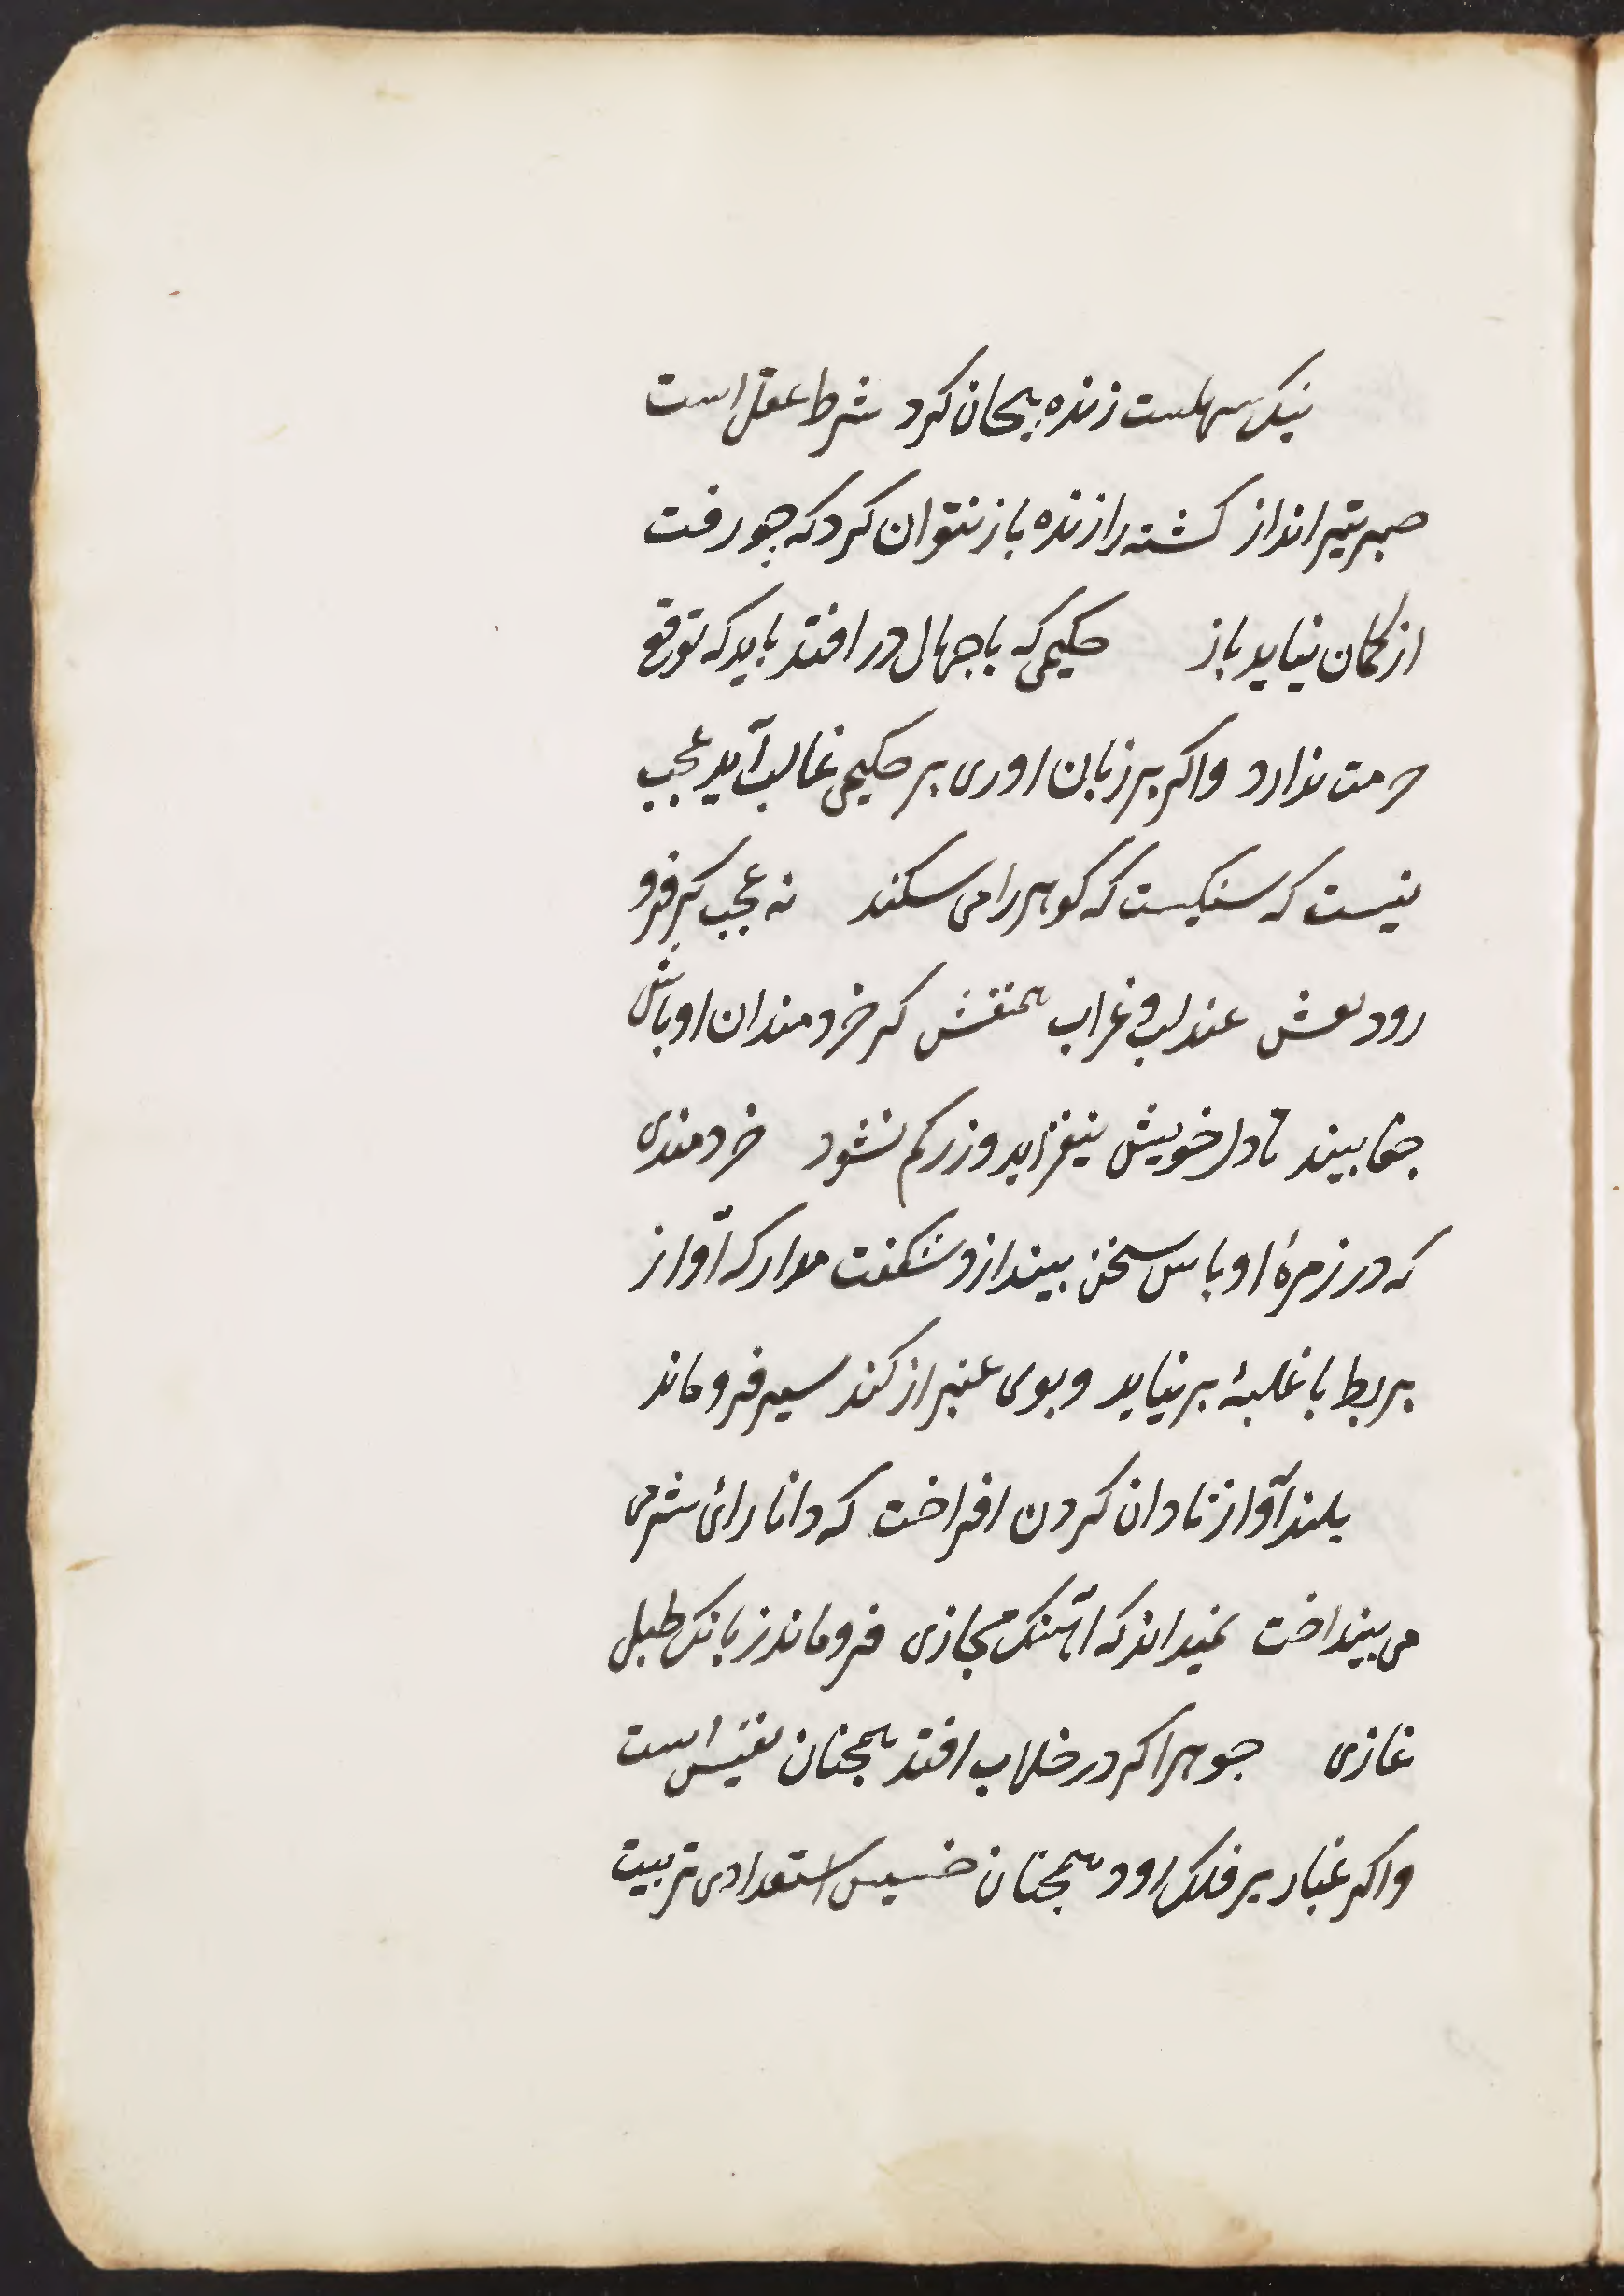 نیک سهلست زنده بیجان کرد شرط عقل است
صبر تیر انداز کشته را زنده باز نتوان کرد که چو رفت
از کمان نیاید باز حکیمی که با جهال در افتد باید که توقع
حرمت ندارد واکر بر زبان اوری بر حکیمی غالب آید عجب
نیست که سنکیست که کوهر را می سکند نه عجب کر فرو
رود نفسش عندلیب و غراب همنفسش کر خردمندان اوباش
جفا بیند تا دل خویش نیفزاید و زر کم نشود خردمندی
که در زمرهٔ اوباس سخن بیندازد شکفت مدار که آواز
بربط با غلبهٔ بر نیاید و بوی عنبر از کند سیر فروماند
بلند آواز نادان کردن افراخت که دانا رائ شرمی
می بینداخت نمیداند که اهنک حجازی فروماند ز بانک طبل
غازی جوهر اکر در خلاب افتد همچنان نفیس است
واکر غبار بر فلک اود همچنان خسیس استعدادی تربیت